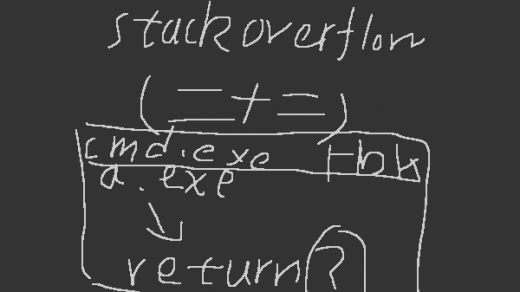 stackoverflow
(=+=)
cmd.exe
a.exe
return?